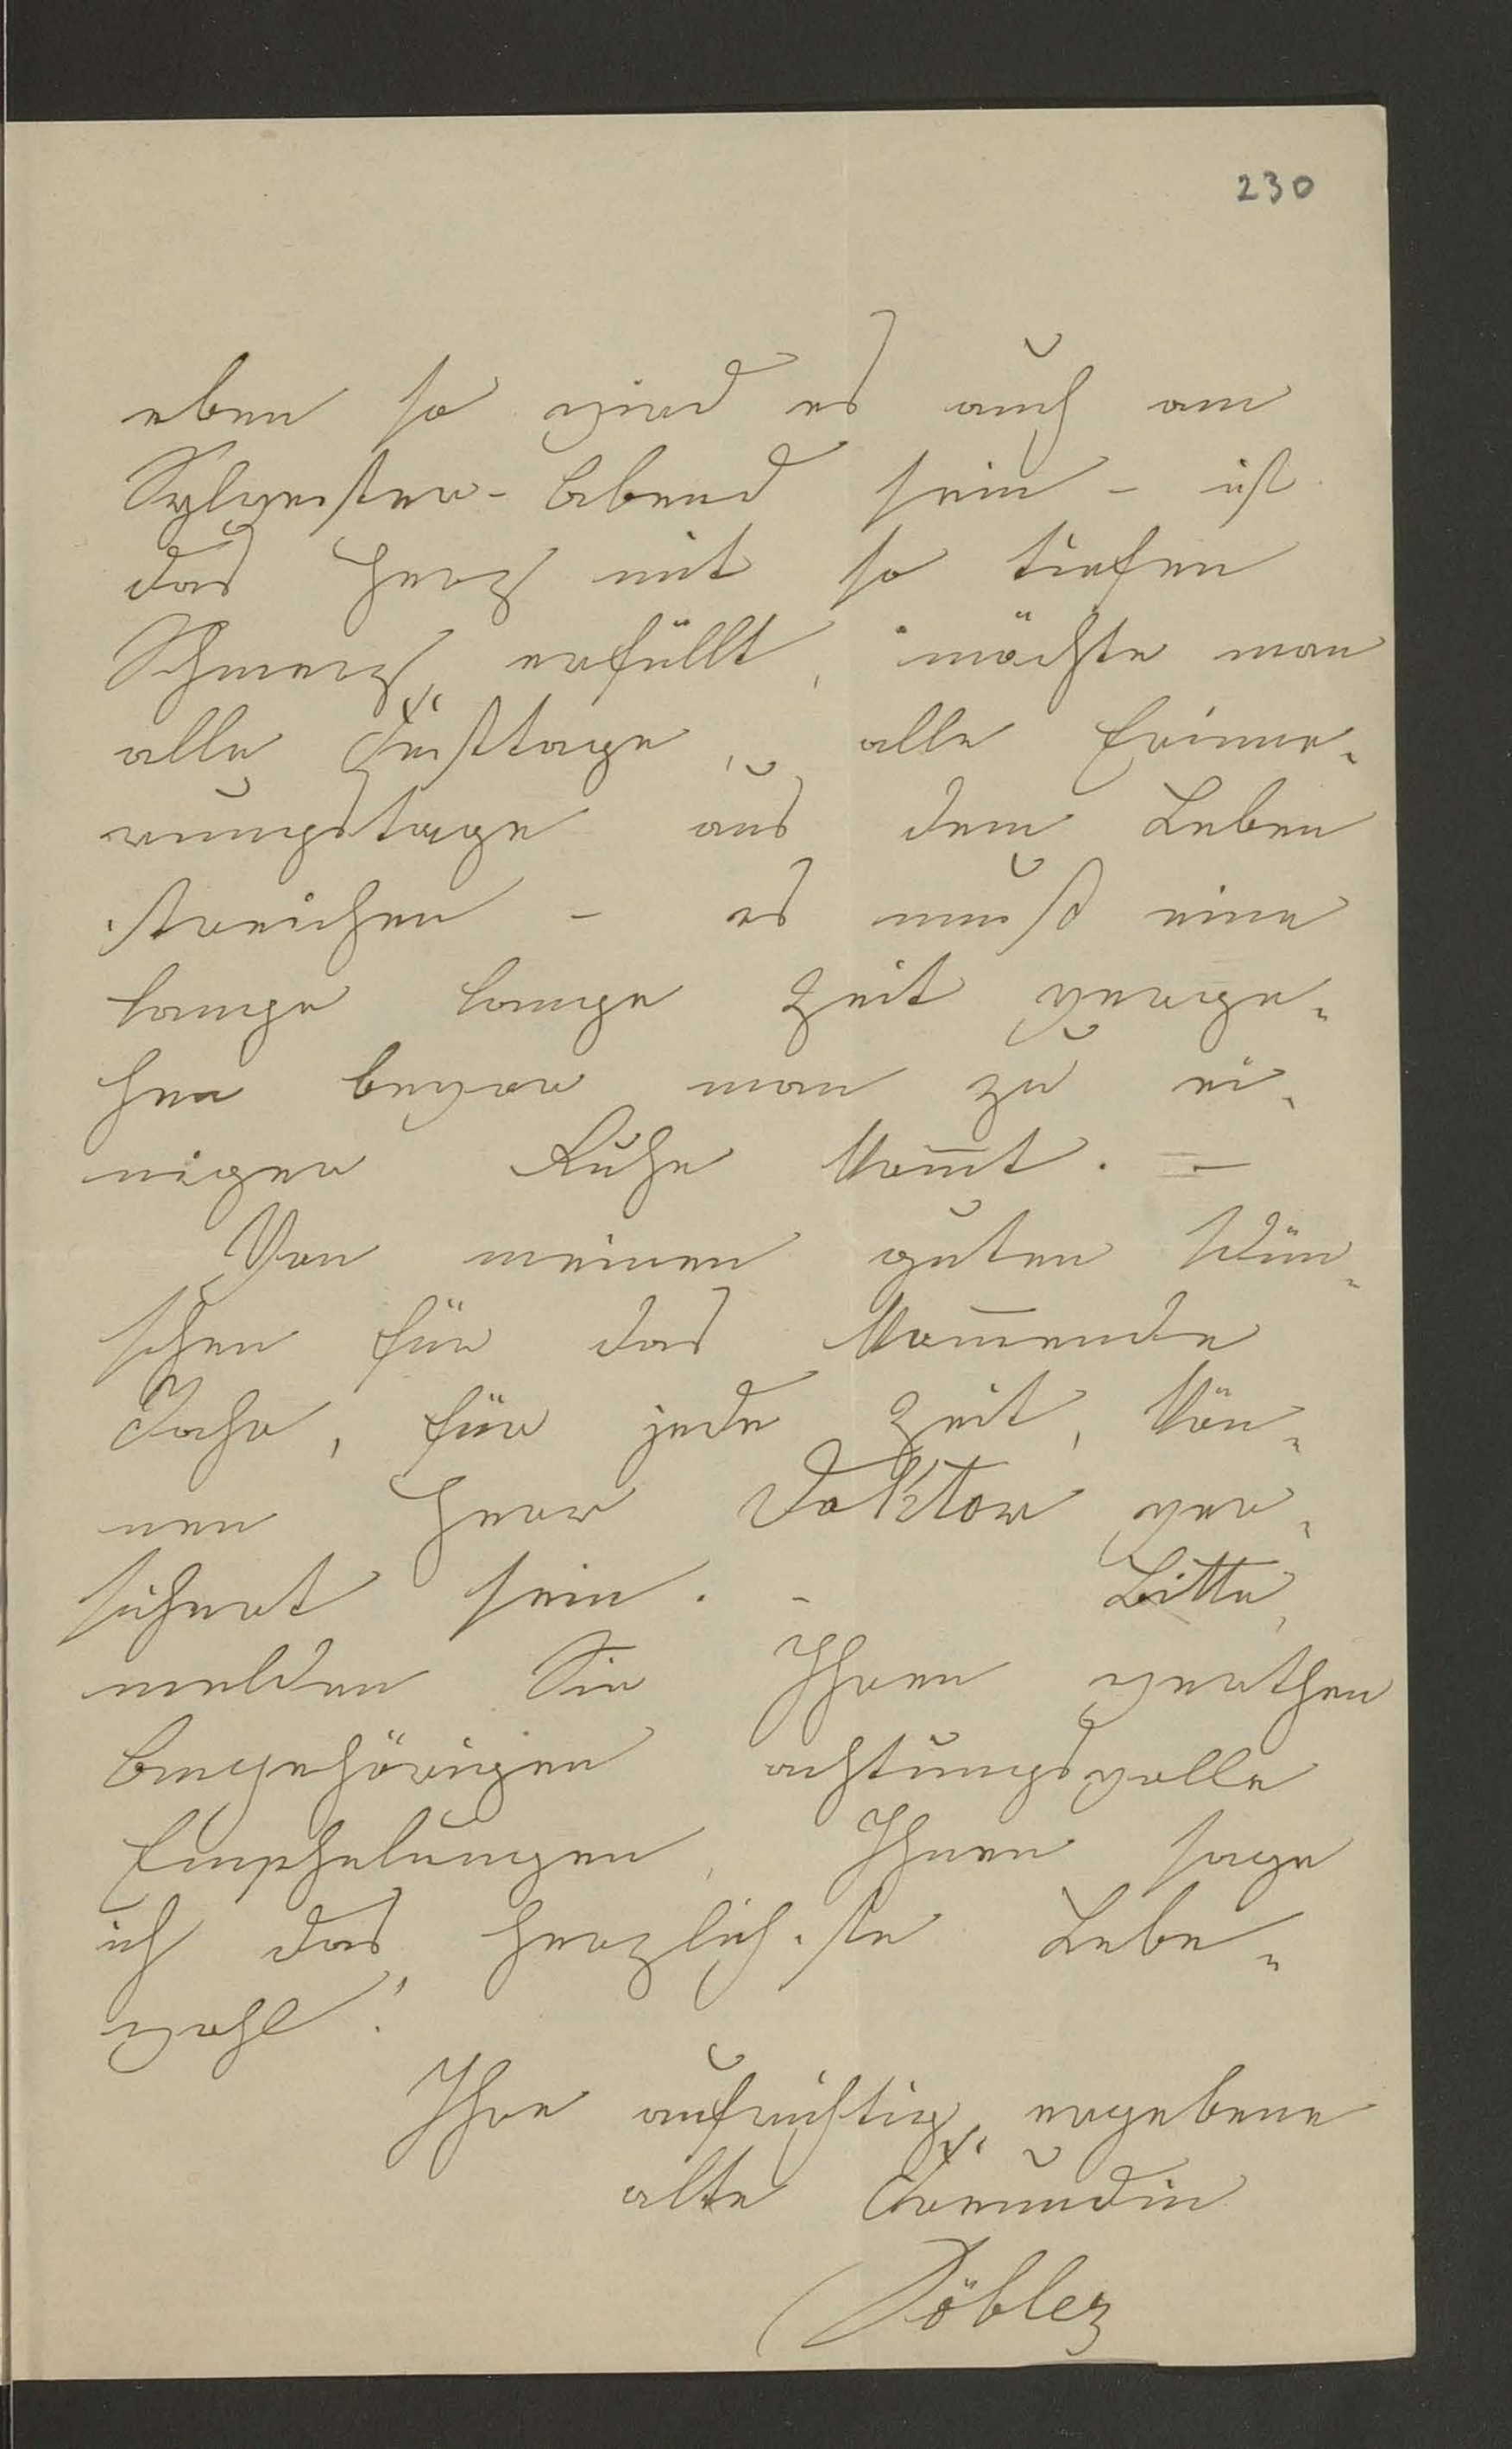 230
eben so wird es auch am
Sylvester-Abend sein - ist
das Herz mit so tiefen
Schmerz erfüllt, möchte man
alle Festtage, alle Erinne-
rungstage aus dem Leben
streichen - es muß eine
lange lange Zeit verge-
hen bevor man zu ei-
niger Ruhe kom̅t. -
Von meinen guten Wün-
schen für das kom̅ende
Jahr, für jede Zeit, kön-
nen Herr Doktor ver-
sichert sein. - Bitte,
melden Sie Ihren werthen
Angehörigen achtungsvolle
Empfehlungen, Ihnen sage
ich das herzlichste Lebe-
wohl!
Ihre aufrichtig ergebene
alte Freundin
Döbler